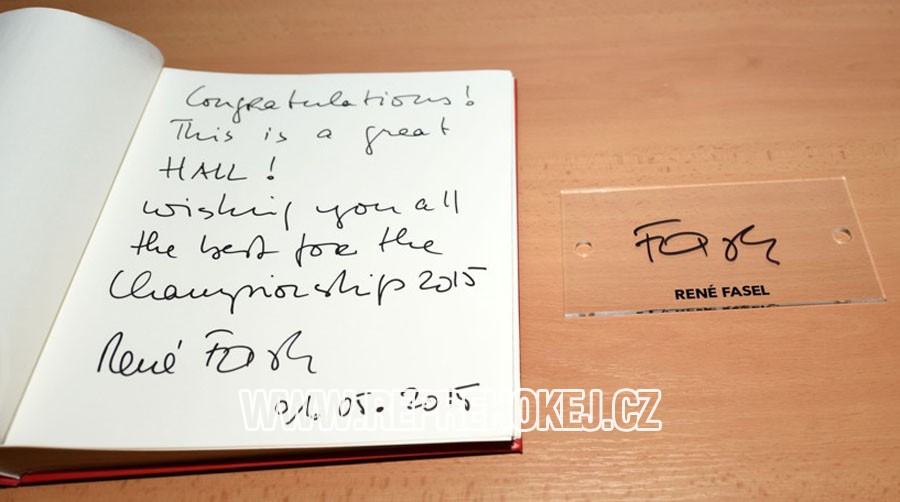 Congratulations!
This is a great
HALL!
wishing you all
the best for the
Championship 2015
René Fasel
05. 2015
Fasel
RENÉ FASEL
WWW.REPREHOKEJ.CZ